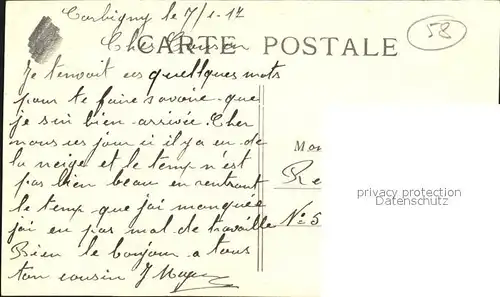 Corbigny le 7/1-12
58
Cher Cousin
CARTE POSTALE
Je tenvoit ces quellques mots
pour te faire savoire que
je sui bien arrivée. Cher
nous ces jour ci il y a eu de
la neige et le temp n'est
pas bien beau en rentrant
le temp que jai manquée
jai eu pas mal de travaille
Bien le bonjour a tous
ton cousin J
Mo
Re
No 5
privacy protection
Datenschutz